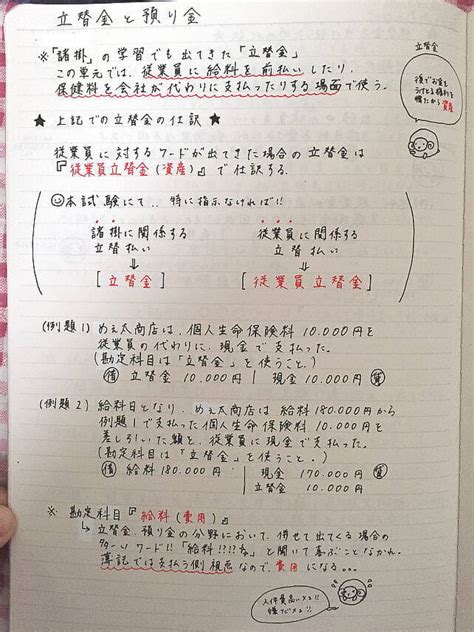 立替金と預り金
※「諸掛」の学習でも出てきた「立替金」
この単元では、従業員に給料を前払いしたり、
保健料を会社が代わりに支払ったりする場面で使う。
立替金
後でお金を
うけとる権利を
得たから資産
★ 上記での立替金の仕訳
従業員に対するワードが出てきた場合の立替金は
『従業員立替金(資産)』で仕訳する。
本試験にて、特に指示なければ!!
諸掛に関係する
立替払い
⇓
[立替金]
従業員に関係する
立替払い
⇓
[従業員立替金]
(例題1) めぇ太商店は、個人生命保険料10.000円を
従業員の代わりに、現金で支払った。
(勘定科目は「立替金」を使うこと。)
借 立替金 10.000円 | 現金 10.000円 貸
(例題2) 給料日となり、めぇ太商店は給料180.000円から
例題1で支払った個人生命保険料10.000円を
差し引いた額を、従業員に現金で支払った。
(勘定科目は「立替金」を使うこと。)
借 給料 180.000円 | 現金 170.000円 貸
立替金 10.000円
※ 勘定科目『給料(費用)』
↳ 立替金・預り金の分野において、併せて出てくる場合の
ターリワード!!「給料!!!!を」と聞いて喜ぶことなかれ。
簿記では支払う側視点なので、費用になる…
人件費高いメェ!!
嫌だメェ!!